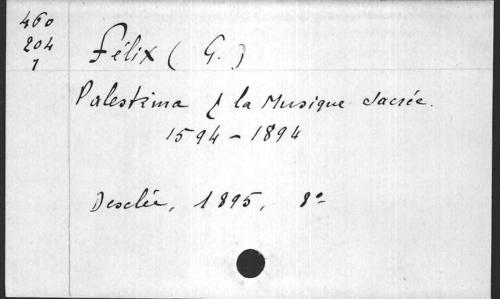 460
204
1
Félix (G.)
Palestrina & la Musique Sacrée.
1594-1894
Desclée, 1895, 8°